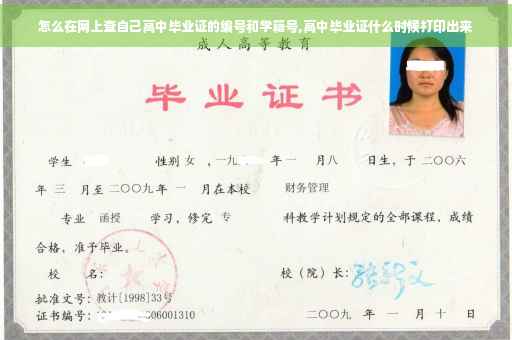 怎么在网上查自己高中毕业证的编号和学籍号,高中毕业证什么时候打印出来
成人高等教育
毕业证书
学生 性别 女 ,一九 年一 月八 日生,于二〇〇六
年 三 月至二〇〇九年 一 月在本校 财务管理
专业 函授 学习,修完 专 科教学计划规定的全部课程,成绩
合格,准予毕业。
校 名: 校(院)长:
批准文号:教计[1998]33号
证书编号: 06001310 二〇〇九 年 一 月 十 日